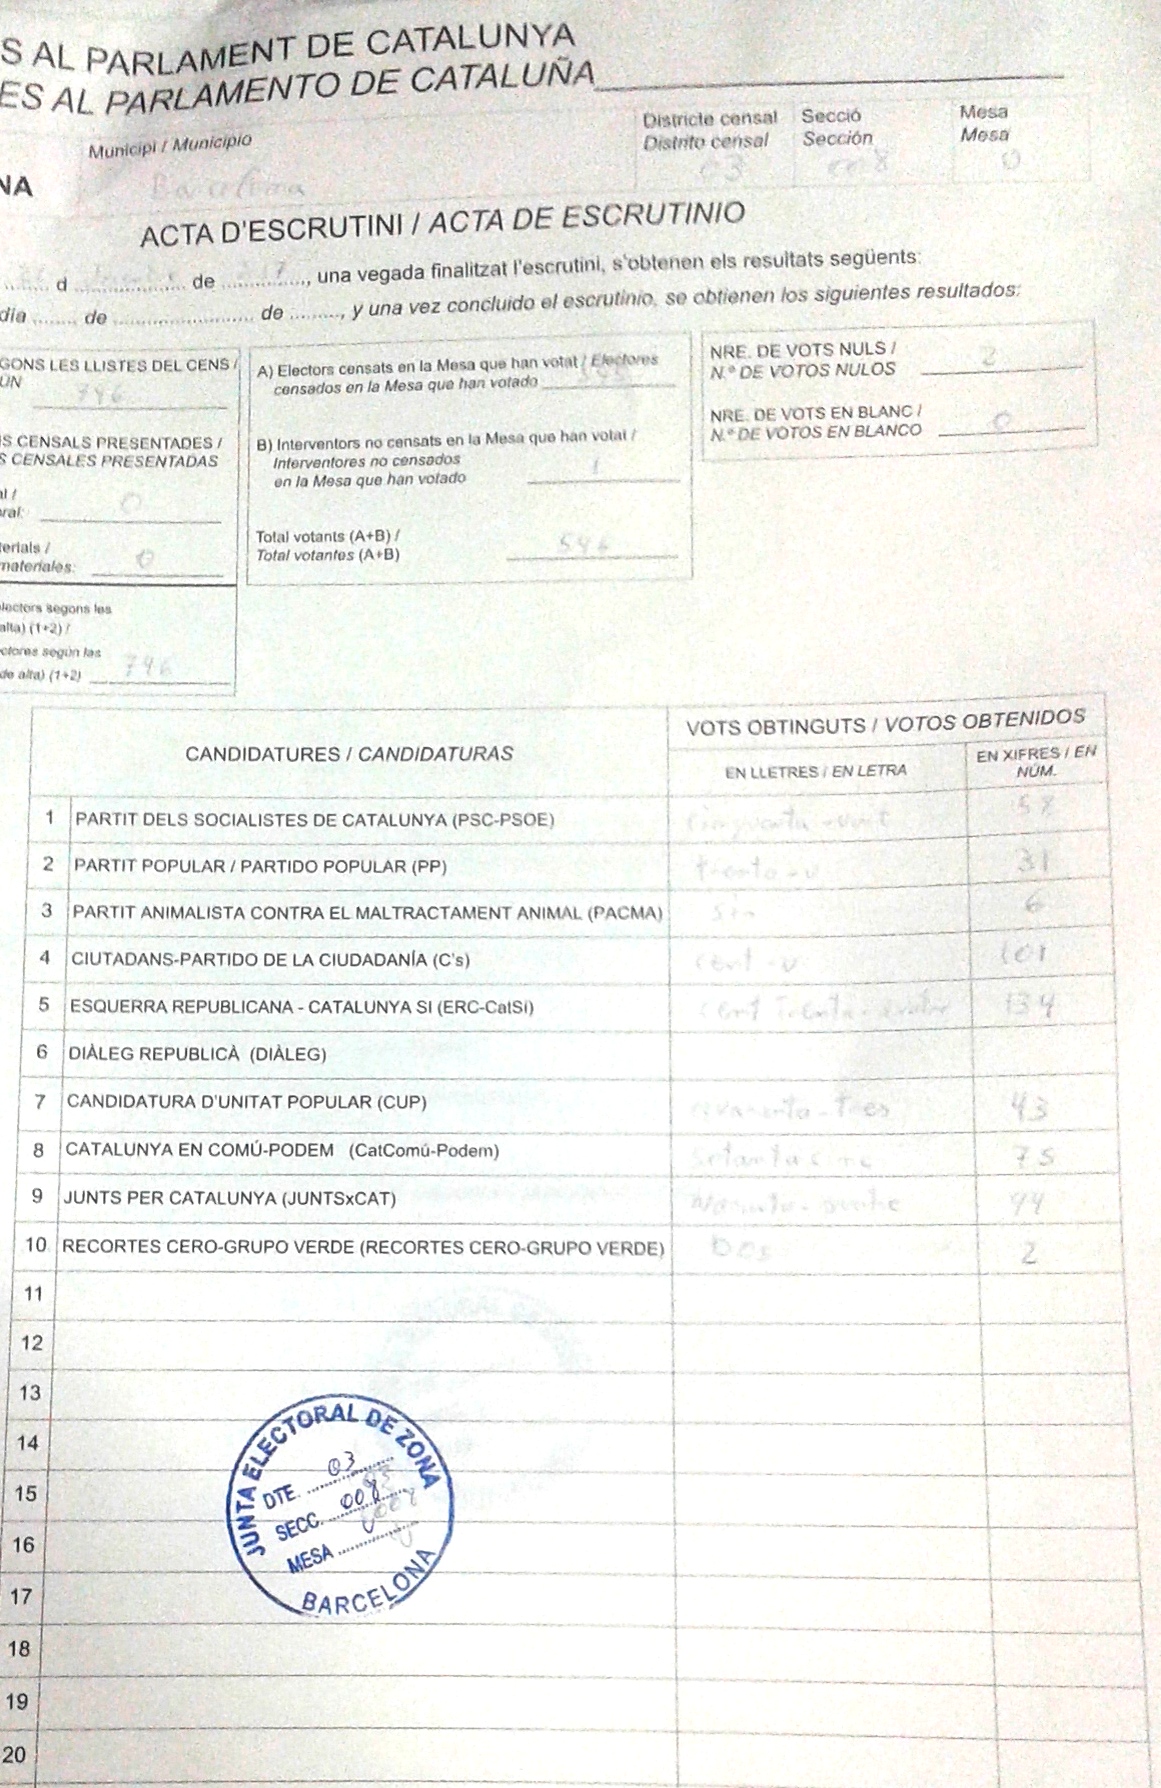 S AL PARLAMENT DE CATALUNYA
ES AL PARLAMENTO DE CATALUÑA
Municipi / Municipio
Districte censal
Distrito censal
Secció
Sección
Mesa
Mesa
NA
Barcelona
03
008
0
ACTA D'ESCRUTINI / ACTA DE ESCRUTINIO
d de , una vegada finalitzat l'escrutini, s'obtenen els resultats següents:
dia de de , y una vez concluido el escrutinio, se obtienen los siguientes resultados:
GONS LES LLISTES DEL CENS /
ÚN
746
S CENSALS PRESENTADES /
S CENSALES PRESENTADAS
al /
ral: 0
terials /
materiales: 0
lectors segons les
alta) (1+2) /
ctores según las
de alta) (1+2) 746
A) Electors censats en la Mesa que han votat / Electores
censados en la Mesa que han votado
B) Interventors no censats en la Mesa que han votat /
Interventores no censados
en la Mesa que han votado 1
Total votants (A+B) /
Total votantes (A+B) 546
NRE. DE VOTS NULS /
N.º DE VOTOS NULOS 2
NRE. DE VOTS EN BLANC /
N.º DE VOTOS EN BLANCO 0
CANDIDATURES / CANDIDATURAS
VOTS OBTINGUTS / VOTOS OBTENIDOS
EN LLETRES / EN LETRA
EN XIFRES / EN
NÚM.
1 PARTIT DELS SOCIALISTES DE CATALUNYA (PSC-PSOE) cinquanta-vuit 58
2 PARTIT POPULAR / PARTIDO POPULAR (PP) trenta-u 31
3 PARTIT ANIMALISTA CONTRA EL MALTRACTAMENT ANIMAL (PACMA) sis 6
4 CIUTADANS-PARTIDO DE LA CIUDADANÍA (C's) cent-u 101
5 ESQUERRA REPUBLICANA - CATALUNYA SI (ERC-CatSí) cent trenta-quatre 134
6 DIÀLEG REPUBLICÀ (DIÀLEG)
7 CANDIDATURA D'UNITAT POPULAR (CUP) 43
8 CATALUNYA EN COMÚ-PODEM (CatComú-Podem) setanta cinc 75
9 JUNTS PER CATALUNYA (JUNTSxCAT) 94
10 RECORTES CERO-GRUPO VERDE (RECORTES CERO-GRUPO VERDE) Dos 2
11
12
13
14
15
16
17
18
19
20
JUNTA ELECTORAL DE ZONA
DTE. 03
SECC. 008
MESA
BARCELONA